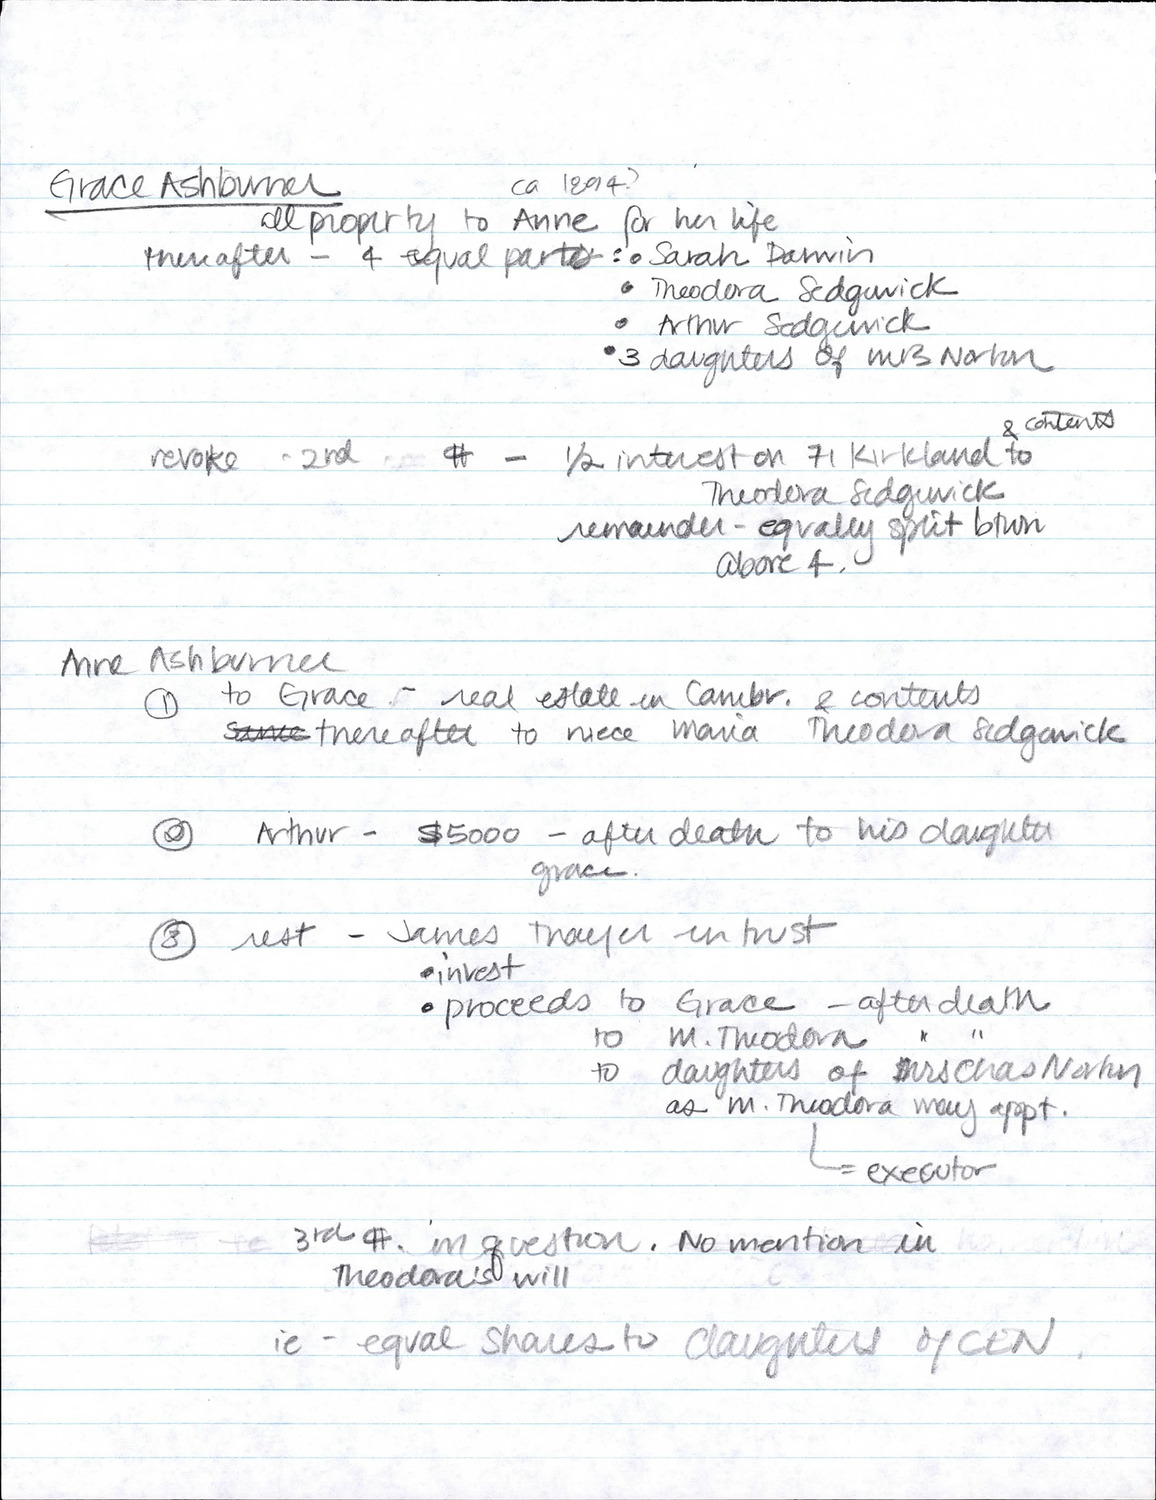 Grace Ashburner ca 1894?
all property to Anne for her life
thereafter – 4 equal parts : • Sarah Darwin
• Theodora Sedgwick
• Arthur Sedgwick
• 3 daughters of Mrs Norton
& contents
revoke - 2nd ¶ – 1/2 interest on 71 Kirkland to
Theodora Sedgwick
remainder – equally split btwn
above 4.
Anne Ashburner
① to Grace – real estate in Cambr. & contents
thereafter to niece Maria Theodora Sedgwick
② Arthur – $5000 – after death to his daughter
grace.
③ rest – James Thayer in trust
• invest
• proceeds to Grace – after death
to M. Theodora " "
to daughters of Mrs Chas Norton
as M. Theodora may appt.
= executor
3rd ¶. in question. No mention in
Theodora's will
ie – equal shares to daughters of CEN.